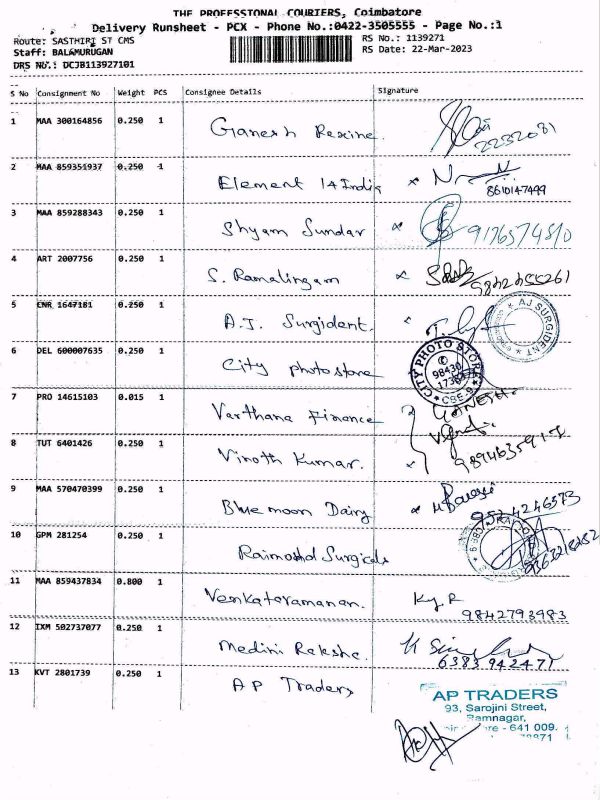 THE PROFESSIONAL COURIERS, Coimbatore
Delivery Runsheet - PCX - Phone No.:0422-3505555 - Page No.:1
Route: SASTHIRI ST CMS
RS No.: 1139271
Staff: BALAMURUGAN
RS Date: 22-Mar-2023
DRS NO.: DCJB113927101
S No Consignment No Weight PCS Consignee Details Signature
1 MAA 300164856 0.250 1 Ganesh Rexine
2232081
2 MAA 859351937 0.250 1 Element 14 India
8610147499
3 MAA 859288343 0.250 1 Shyam Sundar
9176574810
4 ART 2007756 0.250 1 S. Ramalingam
5 CNR 1647181 0.250 1 A.J. Surgident.
AJ SURGIDENT
6 DEL 600007635 0.250 1 City photo store
CITY PHOTO STORE
98430
CBE-9
7 PRO 14615103 0.015 1 Varthana Finance
GANESH.
8 TUT 6401426 0.250 1 Vinoth Kumar.
9 MAA 570470399 0.250 1 Blue moon Dairy
9524246573
10 GPM 281254 0.250 1 Surgicals
11 MAA 859437834 0.800 1 Venkataramanan.
9842793983
12 IXM 502737077 0.250 1 Medini Rakshe.
6383942471
13 KVT 2801739 0.250 1 AP Traders
AP TRADERS
93, Sarojini Street,
Ramnagar,
- 641 009.